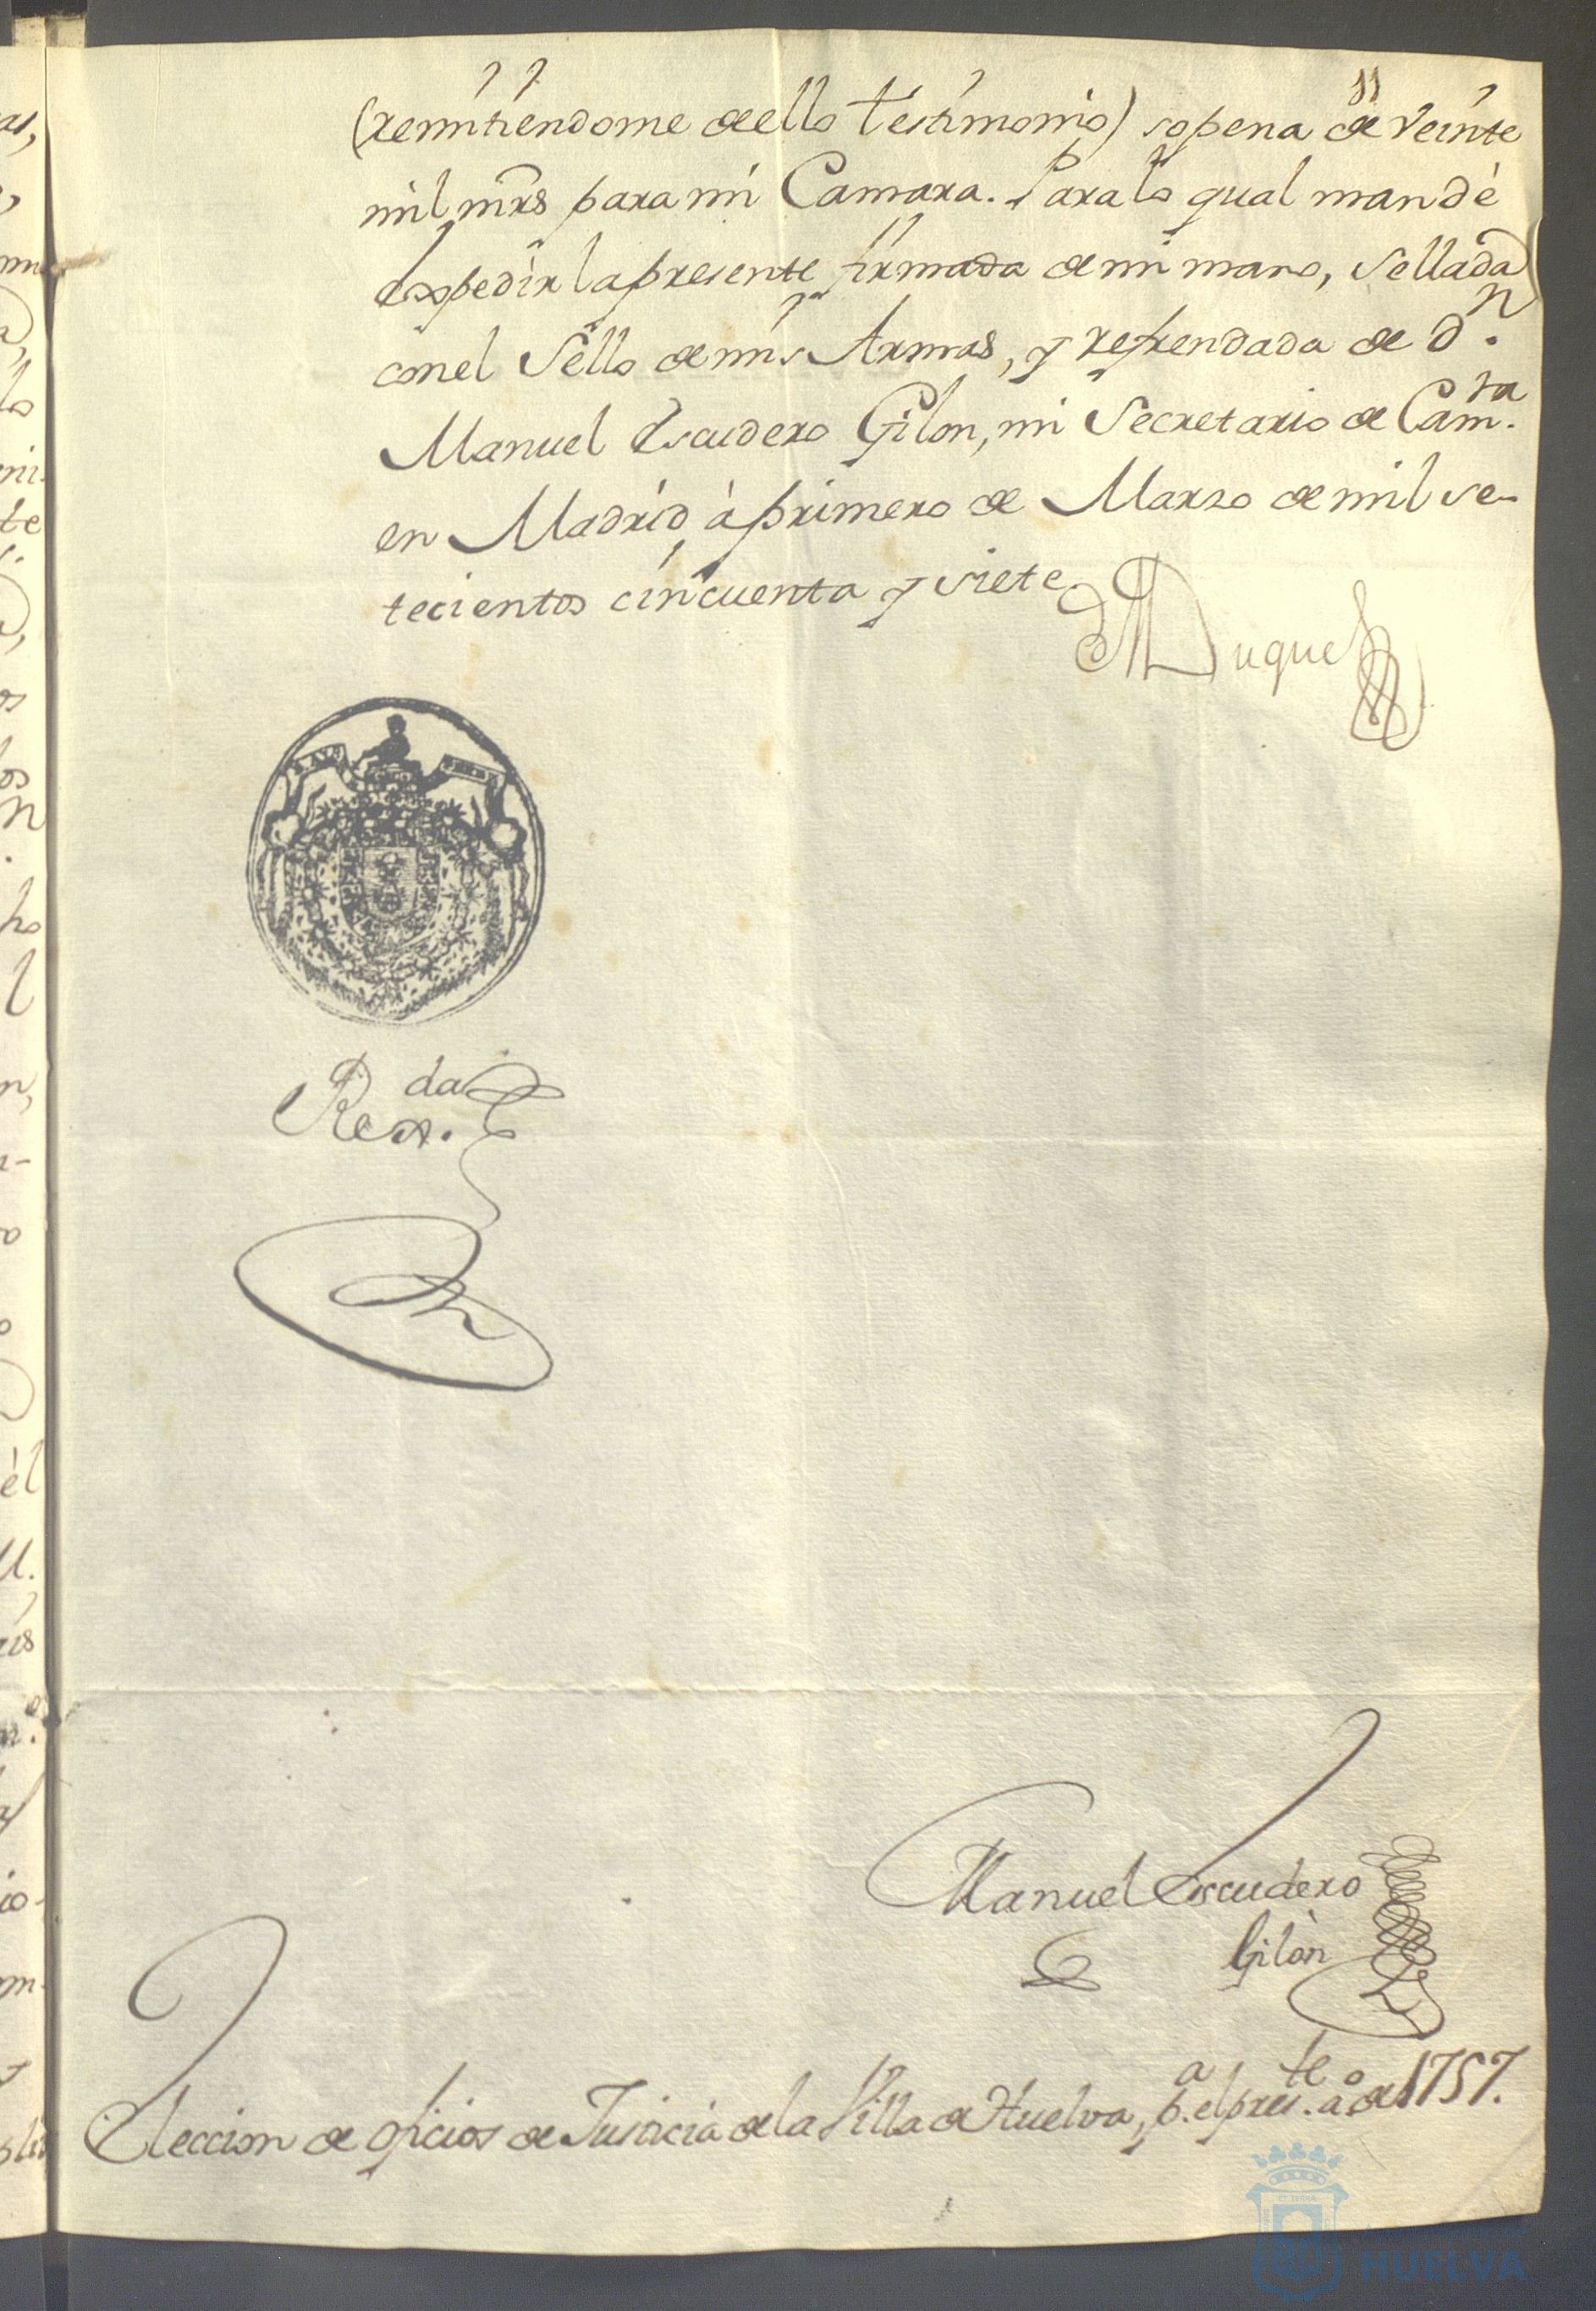 (remitiendome dello Testimonio) sopena de Veinte
mil mrs para mi Camara. Para lo qual mandè
expedir la presente firmada de mi mano, Sellada
con el Sello de mis Armas, y refrendada de Dn.
Manuel Escudero Gilon, mi Secretario de Camra.
en Madrid, à primero de Marzo de mil se-
tecientos cinquenta y siete
El Duque
Rexda.
Manuel Escudero
Gilòn
Eleccion de oficios de Justicia de la Villa de Huelva, pa. el preste. año de 1757.
HUELVA